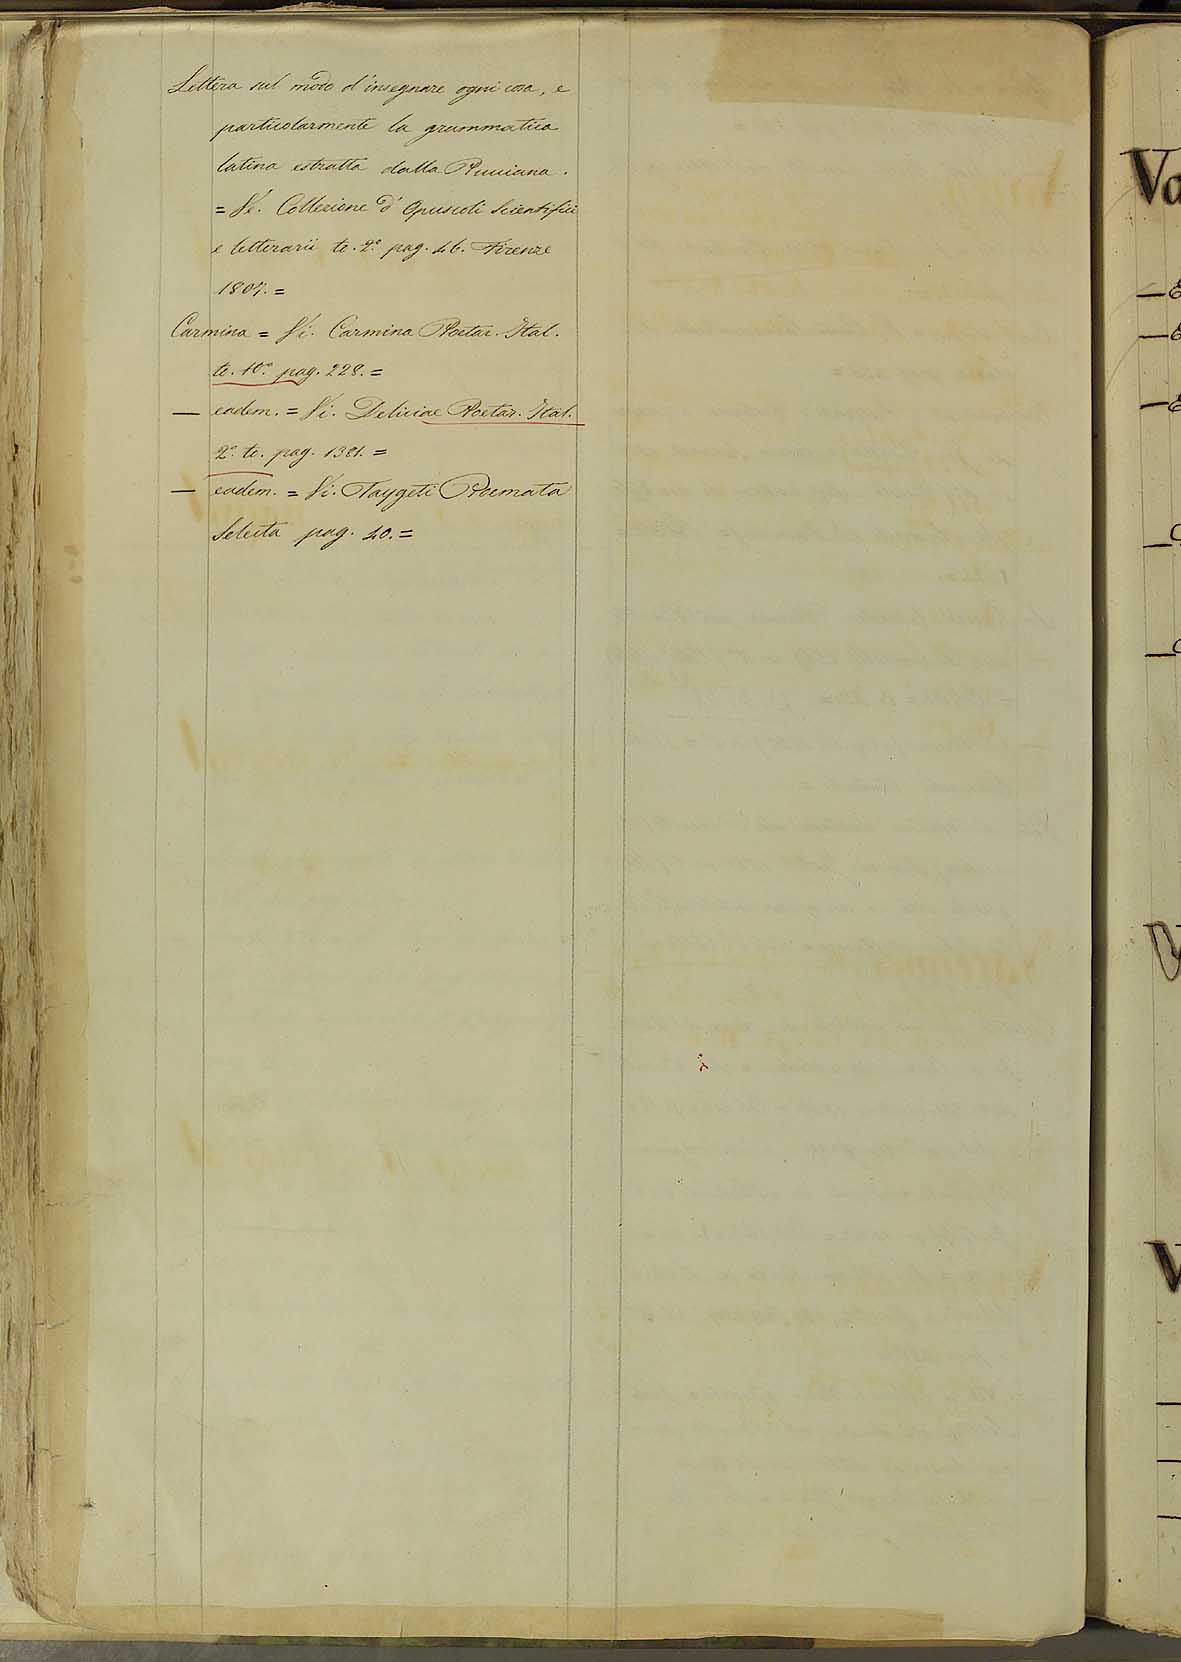 Lettera sul modo d'insegnare ogni cosa, e
particolarmente la grammatica
latina estratta dalla Pucciana.
= Vi. Collezione d'Opuscoli Scientifici
e letterarii to. 2.° pag. 46. Firenze
1807. =
Carmina = Vi. Carmina Poetar. Ital.
to. 10.° pag. 228. =
— eadem. = Vi. Deliciae Poetar. Ital.
2.° to. pag. 1381. =
— eadem. = Vi. Taygeti Poemata
Selecta pag. 40. =
Va